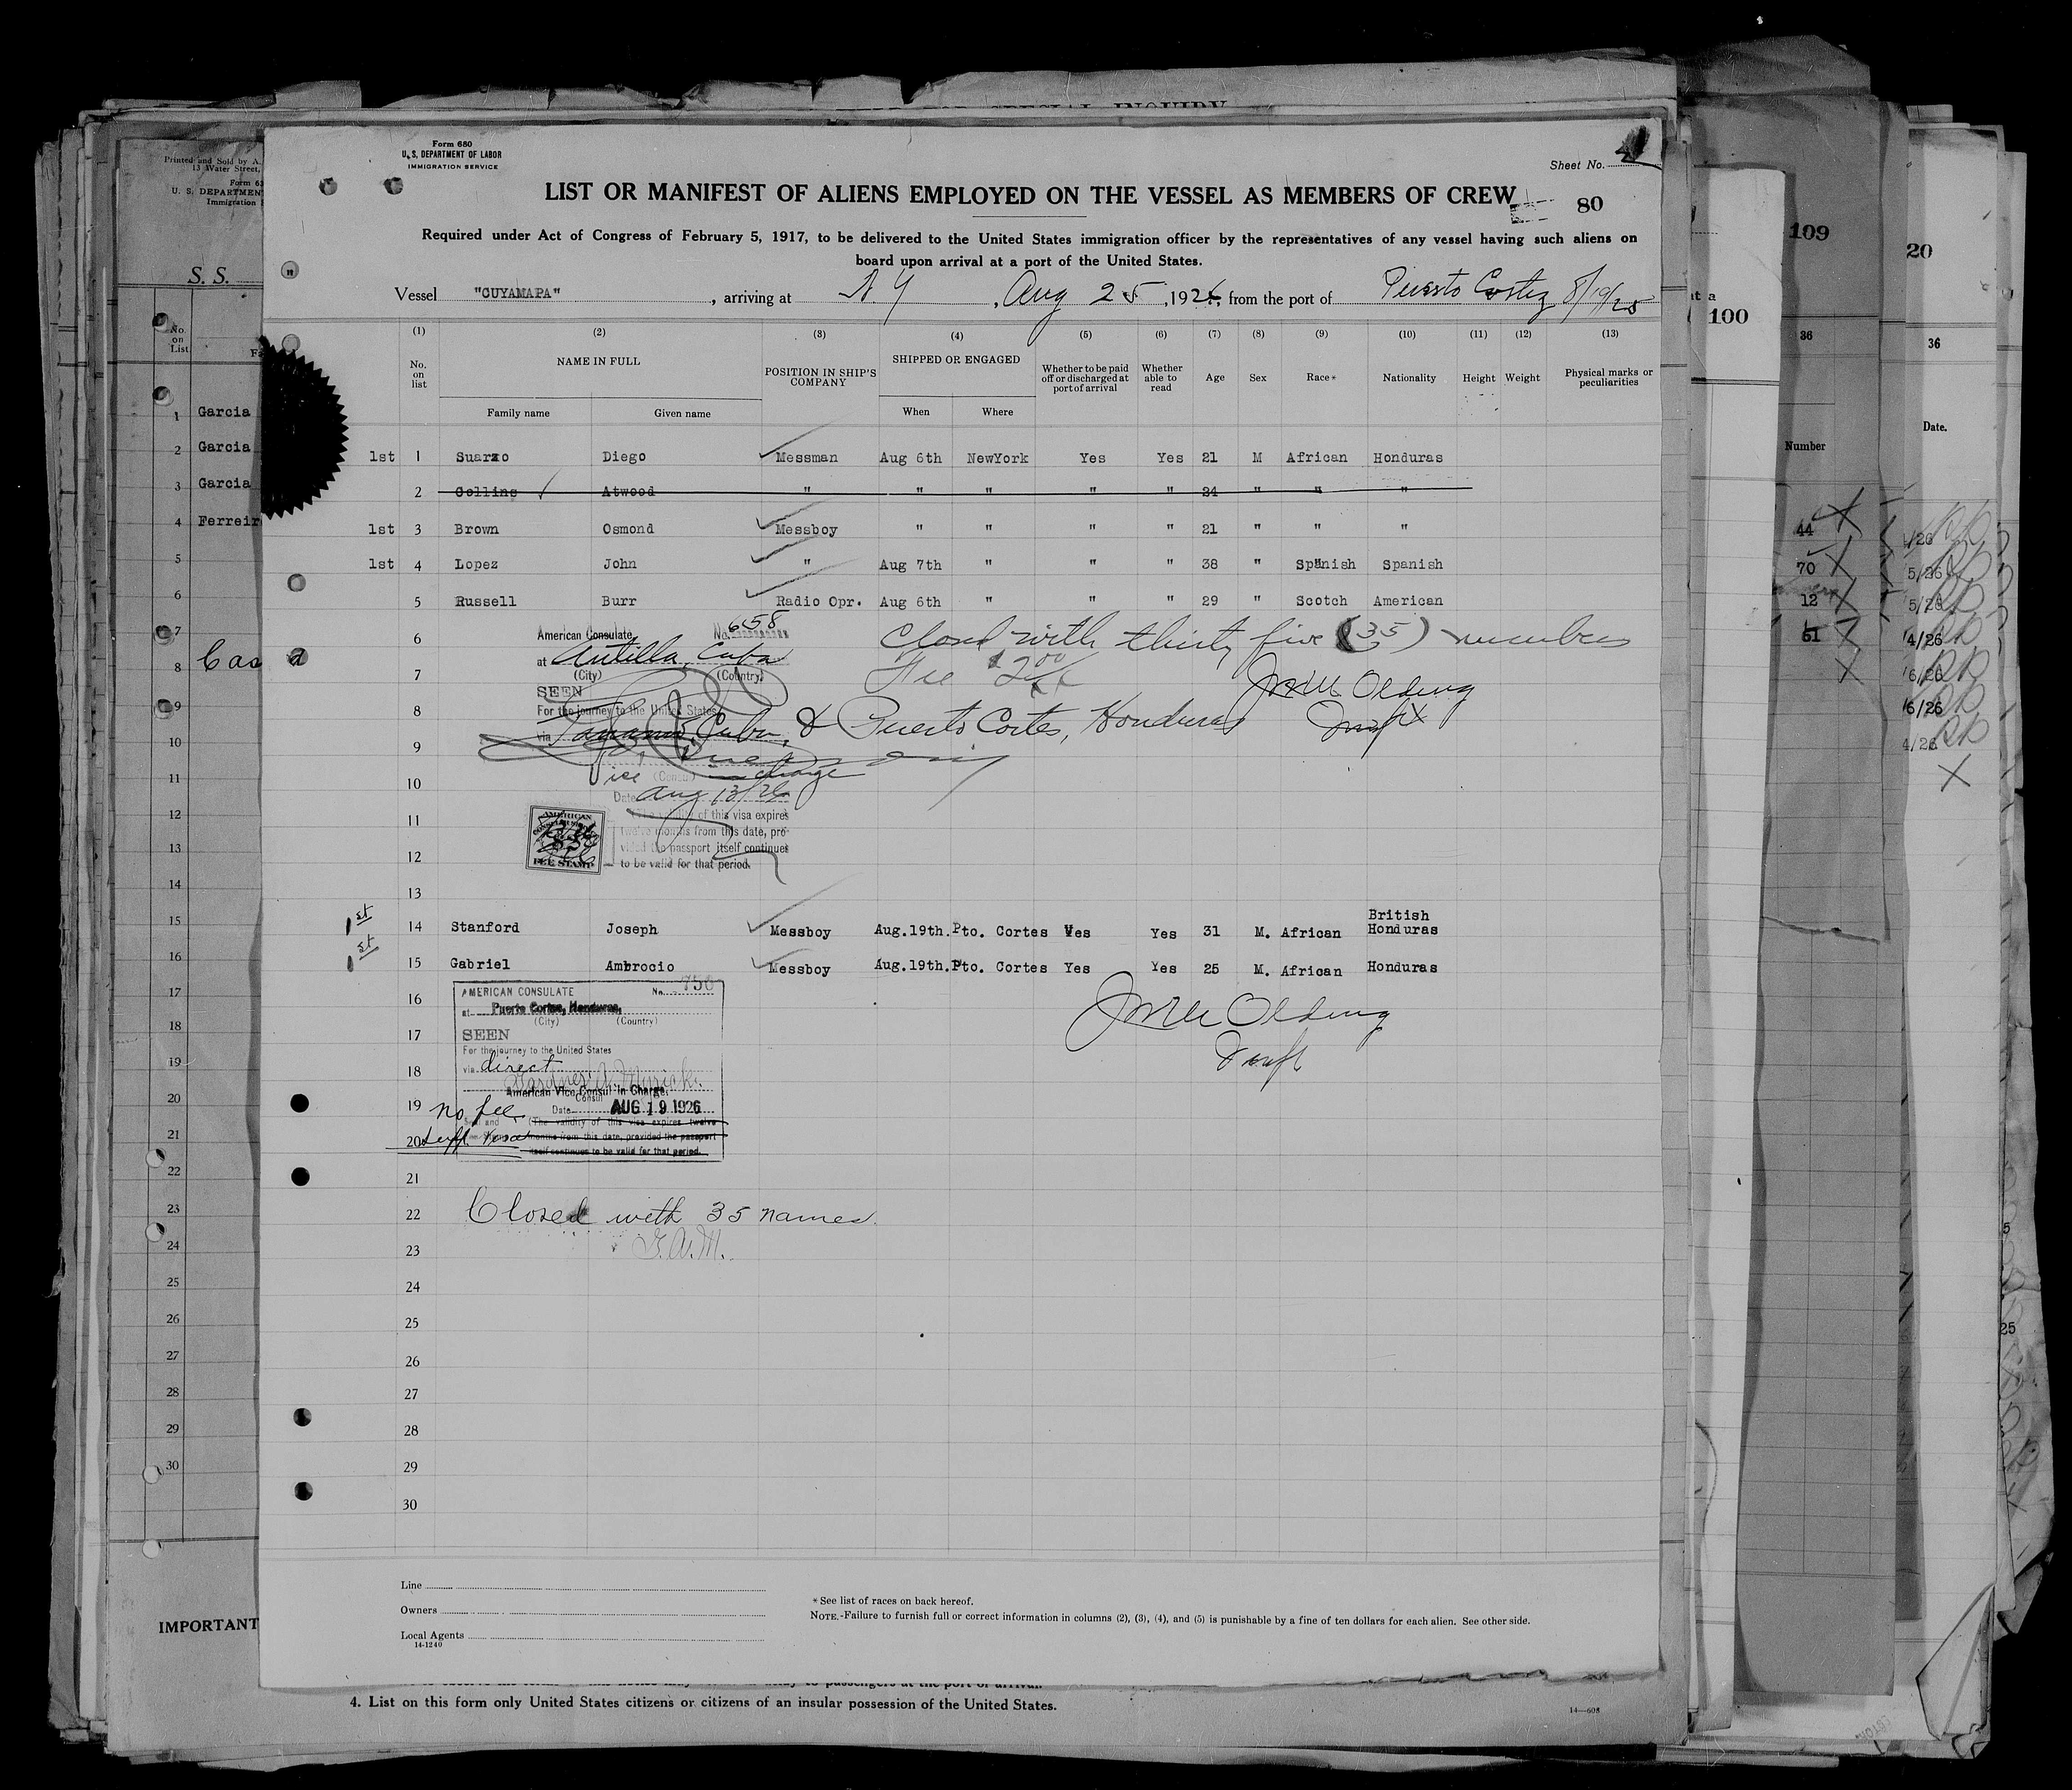 SPECIAL INQUIRY
Printed and Sold by A.
13 Water Street,
Form 63
U. S. DEPARTMENT
Immigration
S. S.
No. on List
1 Garcia
2 Garcia
3 Garcia
4 Ferreir
5
6
7
8 Cas
9
10
11
12
13
14
15
16
17
18
19
20
21
22
23
24
25
26
27
28
29
30
IMPORTANT
Form 680
U. S. DEPARTMENT OF LABOR
IMMIGRATION SERVICE
Sheet No.
LIST OR MANIFEST OF ALIENS EMPLOYED ON THE VESSEL AS MEMBERS OF CREW
80
Required under Act of Congress of February 5, 1917, to be delivered to the United States immigration officer by the representatives of any vessel having such aliens on
board upon arrival at a port of the United States.
Vessel "CUYAMAPA", arriving at N. Y, Aug 25, 1926, from the port of Puerto Cortez 8/19/25
(1) (2) (3) (4) (5) (6) (7) (8) (9) (10) (11) (12) (13)
No. on list NAME IN FULL POSITION IN SHIP'S COMPANY SHIPPED OR ENGAGED Whether to be paid off or discharged at port of arrival Whether able to read Age Sex Race* Nationality Height Weight Physical marks or peculiarities
Family name Given name When Where
1st 1 Suarzo Diego Messman Aug 6th NewYork Yes Yes 21 M African Honduras
2 Collins Atwood " " " " " 24 " " "
1st 3 Brown Osmond Messboy " " " " 21 " " "
1st 4 Lopez John " Aug 7th " " " 38 " Spanish Spanish
5 Russell Burr Radio Opr. Aug 6th " " " 29 " Scotch American
6 American Consulate No. 658 Closed with thirty five (35) members
at Antilla, Cuba
7 (City) (Country) Fee $2.00
SEEN JMM Olding
8 For the journey to the United States
via Cuba, & Puerto Cortes, Honduras
9
10 (Consul) change
Date Aug 13/26
11 The validity of this visa expires
twelve months from this date, pro-
vided the passport itself continues
12 to be valid for that period.
AMERICAN
FEE STAMP
13
1st 14 Stanford Joseph Messboy Aug.19th. Pto. Cortes Yes Yes 31 M. African British Honduras
1st 15 Gabriel Ambrocio Messboy Aug.19th. Pto. Cortes Yes Yes 25 M. African Honduras
16 AMERICAN CONSULATE No. 750
at Puerto Cortes, Honduras,
(City) (Country)
JMM Olding
17 SEEN
For the journey to the United States
18 via direct
American Vice Consul in Charge.
Consul
19 no fee Date AUG 19 1926
(The validity of this visa expires twelve
20 months from this date, provided the passport
itself continues to be valid for that period.
21
22 Closed with 35 names.
23 G. A. M.
24
25
26
27
28
29
30
Line
Owners
Local Agents
14-1240
* See list of races on back hereof.
NOTE.-Failure to furnish full or correct information in columns (2), (3), (4), and (5) is punishable by a fine of ten dollars for each alien. See other side.
4. List on this form only United States citizens or citizens of an insular possession of the United States.
14—608
at a
100
109
36
Number
44
70
12
61
20
36
Date.
/26
5/26
5/26
4/26
6/26
6/26
4/26
5
25